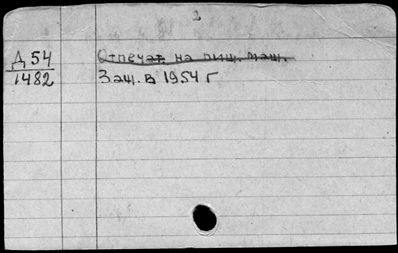 2
Д 54
1482
Отпечат. на пиш. маш.
Защ. в 1954 г